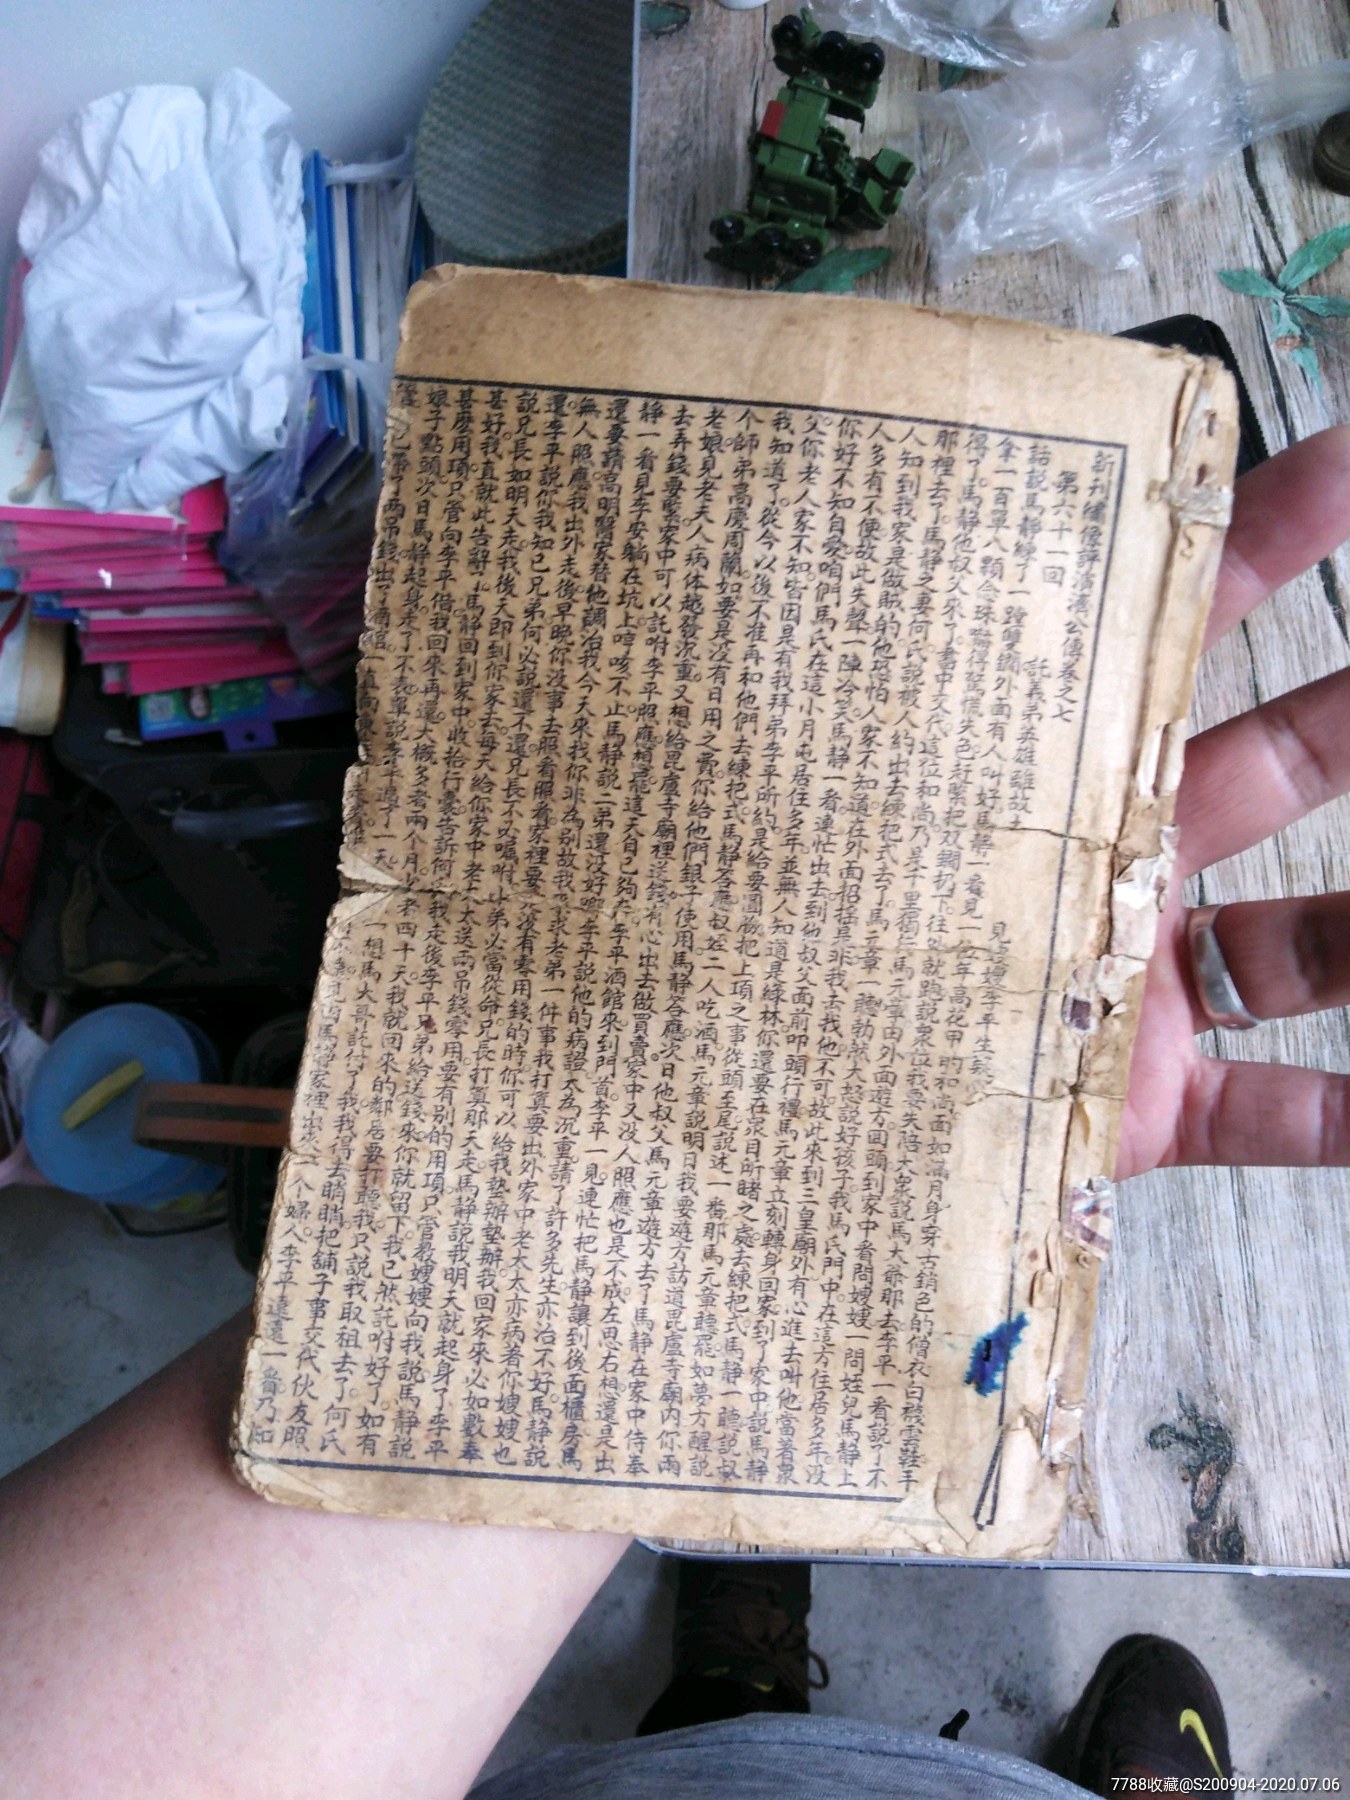 新刊繡像評演濟公傳卷之七
第六十一回 託義弟英雄離故土 見 嫂李平生疑心
話說馬靜練了一蹚雙鐧外面有人叫好馬靜一看見一位年高花甲的和尚面如滿月身穿古銅色的僧衣白襪雲鞋手
拿一百單八顆念珠 得驚慌失色赶緊把双鐧扔下往外就跑說衆位我要失陪大衆說馬大爺那去李平一看說了不
得了馬靜他叔父來了書中交代這位和尚乃是千里獨行馬元章由外面遊方回頭到家中看問嫂嫂一問姪兒馬靜上
那裡去了馬靜之妻何氏說被人約出去練把式去了馬元章一聽勃然大怒說好孩子我馬氏門中在這方住居多年没
人知到我家是做賊的他恐怕人家不知道在外面招搖是非我去找他不可故此來到三皇廟外有心進去叫他當着衆
人多有不便故此失聲一陣冷笑馬靜一看連忙出去到他叔父面前叩頭行禮馬元章立刻轉身回家到了家中說馬靜
你好不知自愛咱們馬氏在這小月屯居住多年並無人知道是綠林你還要在衆目所睹之處去練把式馬靜一聽說叔
父你老人家不知皆因是有我拜弟李平所約是給要圖 把上項之事從頭至尾說述一番那馬元章聽罷如夢方醒說
我知道了從今以後不准再和他們去練把式馬靜答應叔姪二人吃酒馬元章說明日我要遊方訪道毘盧寺廟内你兩
个師弟高慶周蘭如要是没有日用之費你給他們銀子使用馬靜答應次日他叔父馬元章遊方去了馬靜在家中侍奉
老娘見老夫人病体越發沉重又想給毘盧寺廟裡送錢有心出去做買賣家中又没人照應也是不成左思右想還是出
去弄錢要緊家中可以託咐李平照應想罷這天自己夠奔李平酒館來到門首李平一見連忙把馬靜讓到後面櫃房馬
靜一看見李安躺在坑上哼咳不止馬靜說二弟還没好哪李平說他的病證太為沉重請了許多先生亦治不好馬靜說
還要請高明醫家替他調治我今天來找你非為别故我 求老弟一件事我打算要出外家中老太太亦病着你嫂嫂也
無人照應我出外走後早晚你没事去照看照看家裡要 後有零用錢的時你可以給我墊辦墊辦我回家來必如數奉
還李平說你我知己兄弟何必說還不還兄長不必囑咐小弟必當從命兄長打算那天走馬靜說我明天就起身了李平
說兄長如明天走我後天即到你家去每天給你家中老太太送兩吊錢零用要有别的用項只管教嫂嫂向我說馬靜說
甚好我直就此告辭了馬靜回到家中收拾行囊告訴何氏我走後李平兄弟給送錢來你就留下我已然託咐好了如有
甚麽用項只管向李平借我回來再還大概多者兩个月少者四十天我就回來的鄰居要打聽我只說我取祖去了何氏
娘子點頭次日馬靜起身走了不表單說李平過了一天 一想馬大哥託付了我我得去瞧瞧把舖子事交代伙友照